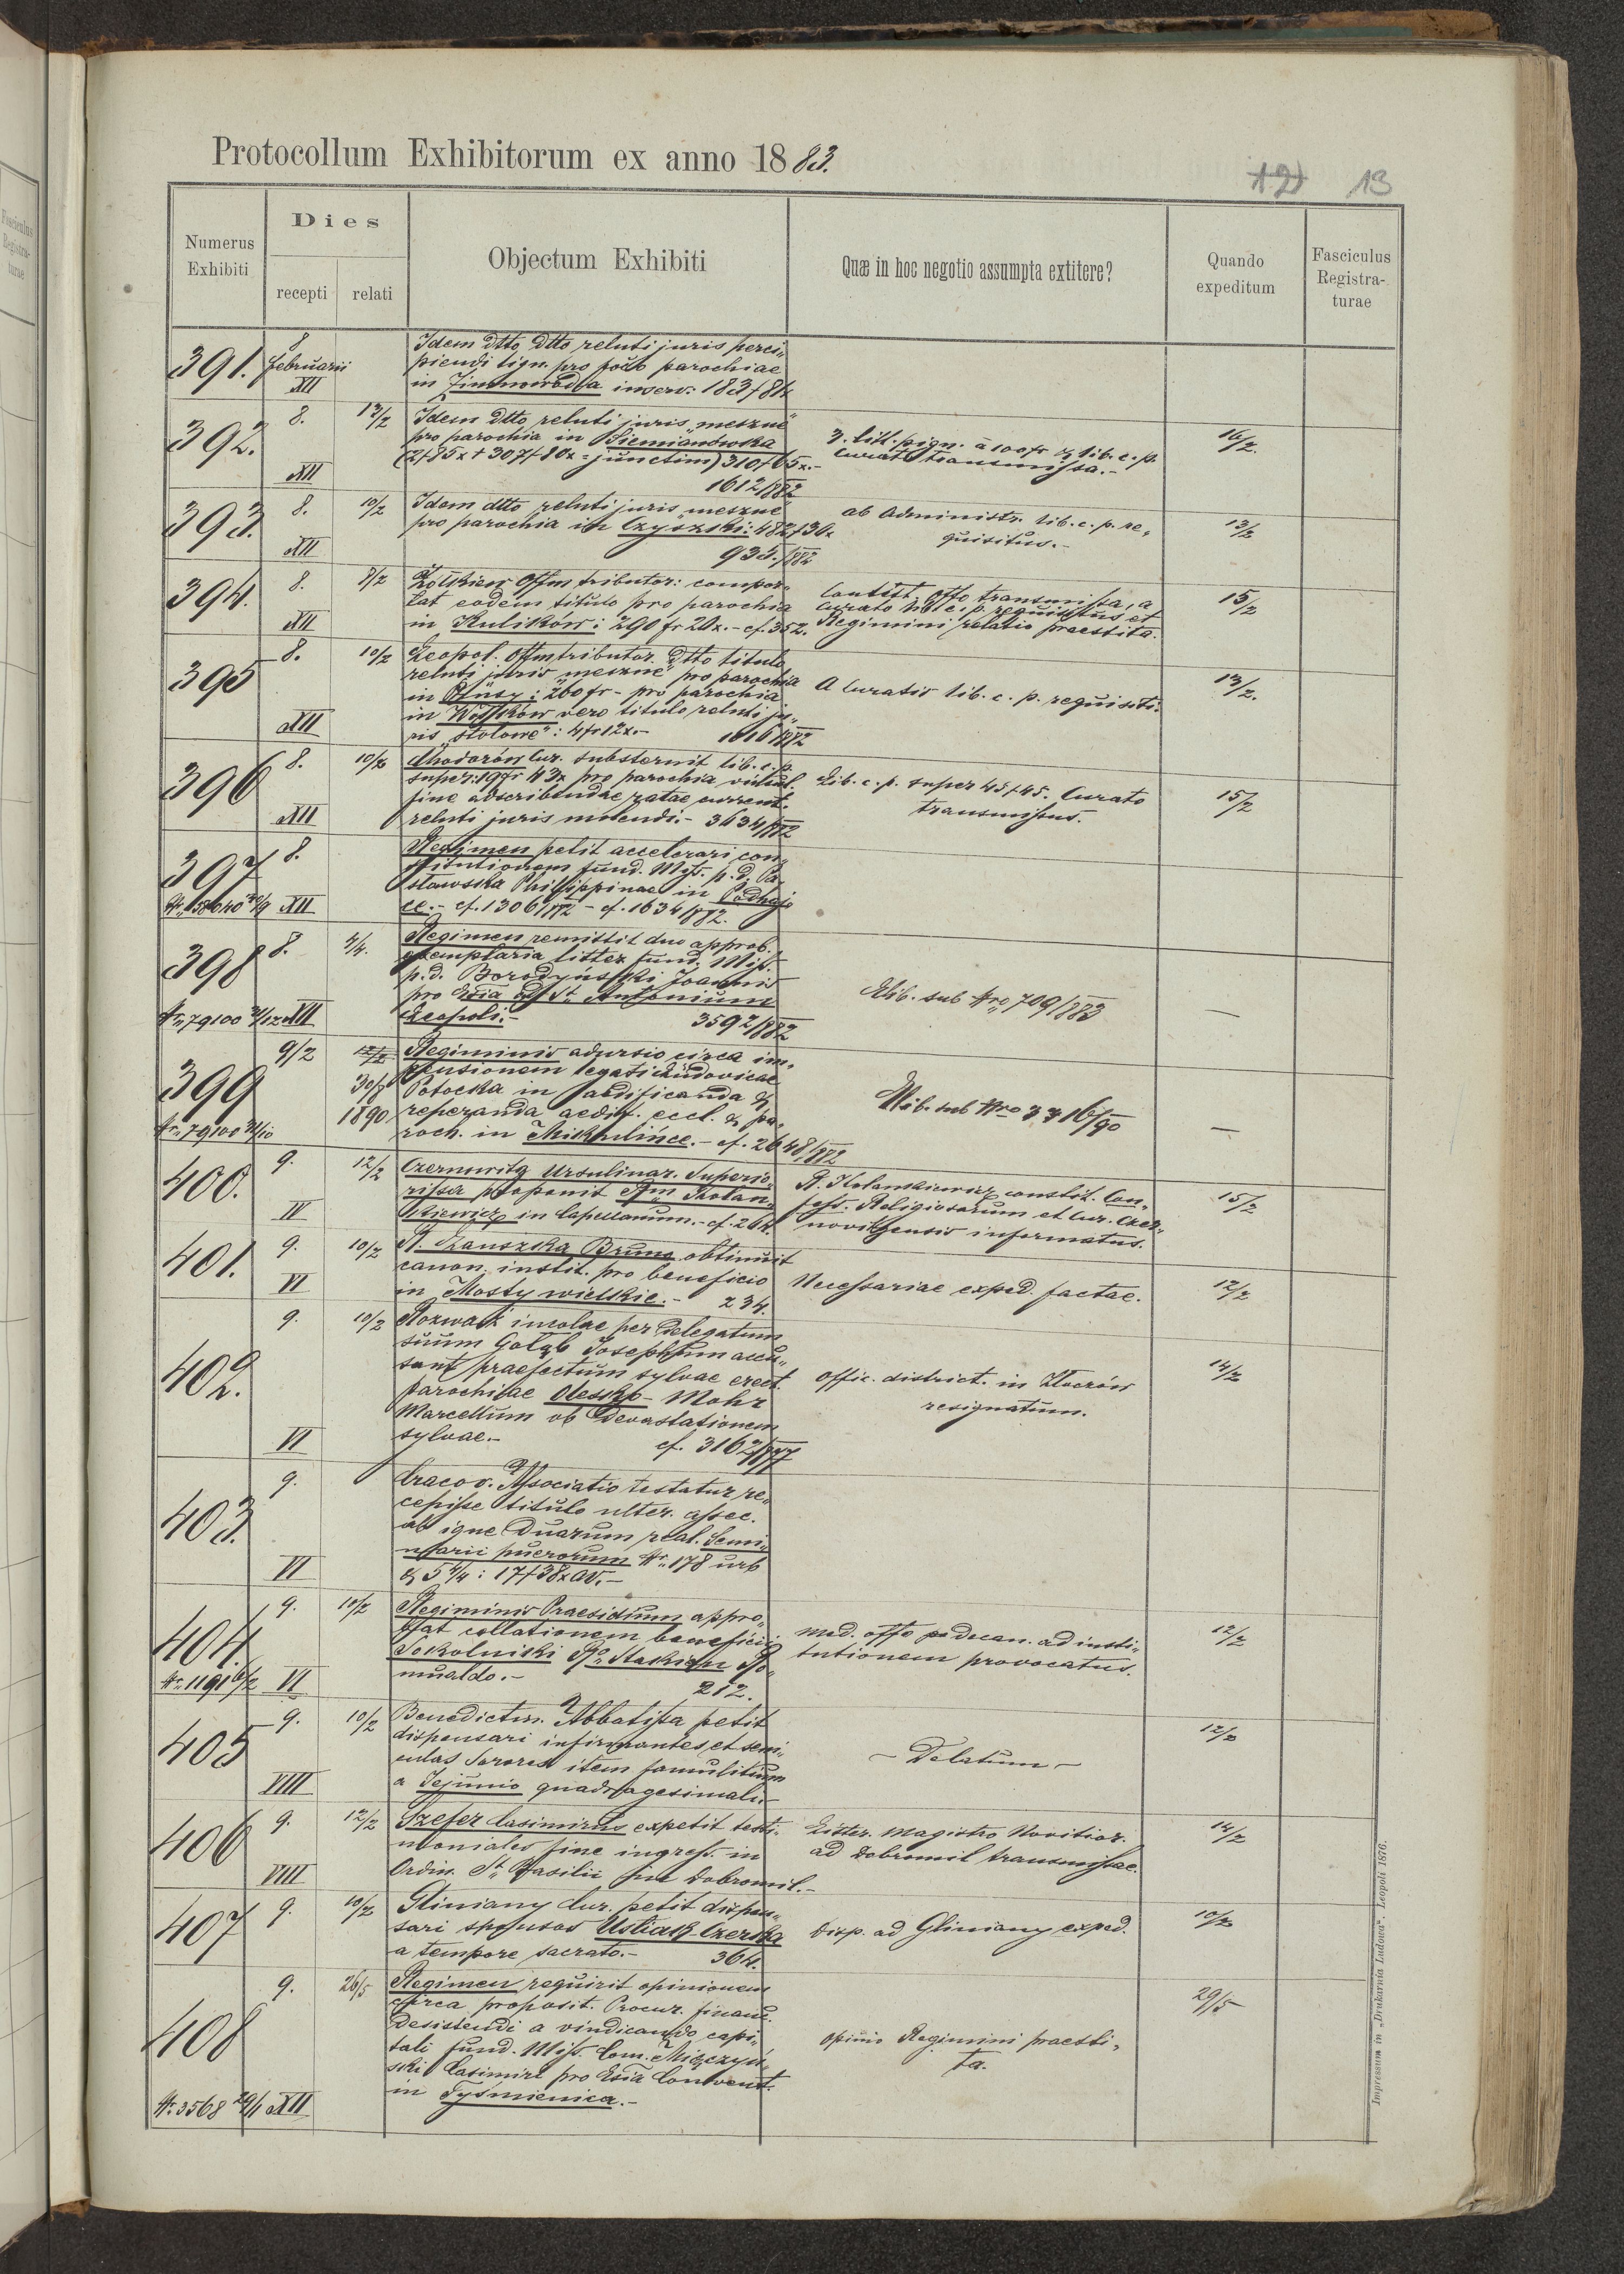 Protocollum Exhibitorum ex anno 1883.
12 13
Numerus Exhibiti
Dies
recepti
relati
Objectum Exhibiti
Quæ in hoc negotio assumpta extitere?
Quando expeditum
Fasciculus Registra-turae
391.
8 februarii
XII
Idem dtto dtto reluti juris perci„
piendi lign. pro foco parochiae
in Zimnowodka inserv: 183f 81x
392.
8.
XII
13/2
Idem dtto reluti juris „meszne"
pro parochia in Siemianówka
(2f 85x + 307f 80x = junctim) 310f 65x.-
1612/882
3. litt. pign. à 100 fr & lib. c. p.
Curato transmissa.-
16/2.
393.
8.
XII
10/2
Idem dtto reluti juris „meszne"
pro parochia in Czyszki: 482f 30x
935./882
ab Administr. lib. c. p. re„
quisitus.-
13/2
394.
8.
XII
8/2
Żołkiew Offm tributor: compor„
tat eodem titulo pro parochia
in Kulikow: 290 fr 20x.- cf. 352.
Contest. offo transmissa, a
Curato lib. c. p. requisitus et
Regimini relatio praestita.
15/2
395
8.
XII
10/2
Leopol. Offm tributor. dtto titulo
reluti juris „meszne" pro parochia
in : 260 fr - pro parochia
in vero titulo reluti ju„
ris „stolowe": 4 fr 12x.- 1616/882
A Curatis lib. c. p. requisiti.
13/2.
396
8.
XII
10/2
Chodorów Cur. substernit lib. c. p.
super: 19 fr 43x pro parochia vincul.
fine adscribendae ratae current.
reluti juris molendi.- 3634/882
Lib. c. p. super 45f 45. Curato
transmissus.
15/2
397
8.
XII
Regimen petit accelerari con„
stitutionem fund. Miss. p. d.
Philippinae in Podhaj„
ce.- cf. 1306/882 - cf. 1634/882.
398
8.
Nr. 79100 XII
4/4.
Regimen remittit duo approb.
exemplaria litter. fund. Miss.
p. d. Borodyński Joannis
pro Ecsia ad St. Antonium
Leopoli.- 3592/882
Exib. sub Nro 709/883
—
399
9/2
Nr. 79100 31/10
12/2
30/8
1890
Regiminis adursio circa im„
pensionem legati Ludovicae
Potocka in aedificanda &
reperanda aedif. eccl. & pa„
roch. in Mikulińce.- cf. 2648/882
Exib. sub Nro 3316/90
—
400.
9.
IV
12/2
Czernowitz Ursulinar. Superio„
rissa proponit Rm Kolan„
kiewicz in Capellanum.- cf. 264.
R. Kolankiewicz constit. Con„
fess. Religiosarum et Cur. Czer„
novitzensis informatus.
15/2
401.
9.
VI
10/2
R. Zauszka Bruno obtinuit
canon. instit. pro beneficio
in Mosty wielkie.- 234.
Necessariae exped. factae.
12/2
402.
9.
VI
10/2
incolae per Delegatum
suum Gołąb Josephum accu„
sant praefectum sylvae erect.
parochiae Olesko - Mohr
Marcellum ob Devastationem
sylvae.- cf. 3162/877
Offic. district. in Złoczów
resignatum.
14/2
403.
9.
VI
Cracov. Associatio testatur re„
cepisse titulo ulter. assec.
ab igne Duarum real. Semi„
narii puerorum Nr. 178 urb
& 5 4/4: 17f 38x aw.-
404.
9.
Nr. 1191 6/2 VI
10/2
Regiminis Praesidium appro„
bat collationem beneficii
Sokolniki Ro. Stakiew Ro„
mualdo.- 212.
Med. offo pe decan. ad insti„
tutionem provocatus.
12/2
405
9.
VIII
10/2
Benedictin. Abbatissa petit
dispensari infirmantes et seni„
culas Sorores item famulitium
a Jejunio quadragesimali.-
- Delatum -
12/2
406
9.
VIII
12/2
Szefer Casimirus expetit testi„
moniales fine ingress. in
Ordin. St. Basilii in Dobromil.-
Litter. Magistro Novitior.
ad Dobromil transmissae.
14/2
407
9.
10/2
Gliniany Cur. petit dispen„
sari sponsos Ustiak - Czerska
a tempore sacrato.- 364.
Disp. ad Gliniany exped.
10/2
408
9.
Nr. 3568 29/1 XII
26/5
Regimen requirit opinionem
circa proposit. Procur. financ.
Desistendi a vindicando capi„
tali fund. Miss. Com. Miączyń„
ski Casimiri pro Ecsia Convent.
in Tyśmienica.-
Opinio Regimini praesti„
ta.
29/5
Impressum in „Drukarnia Ludowa". Leopoli 1876.
Fasciculus
Registra-
turae